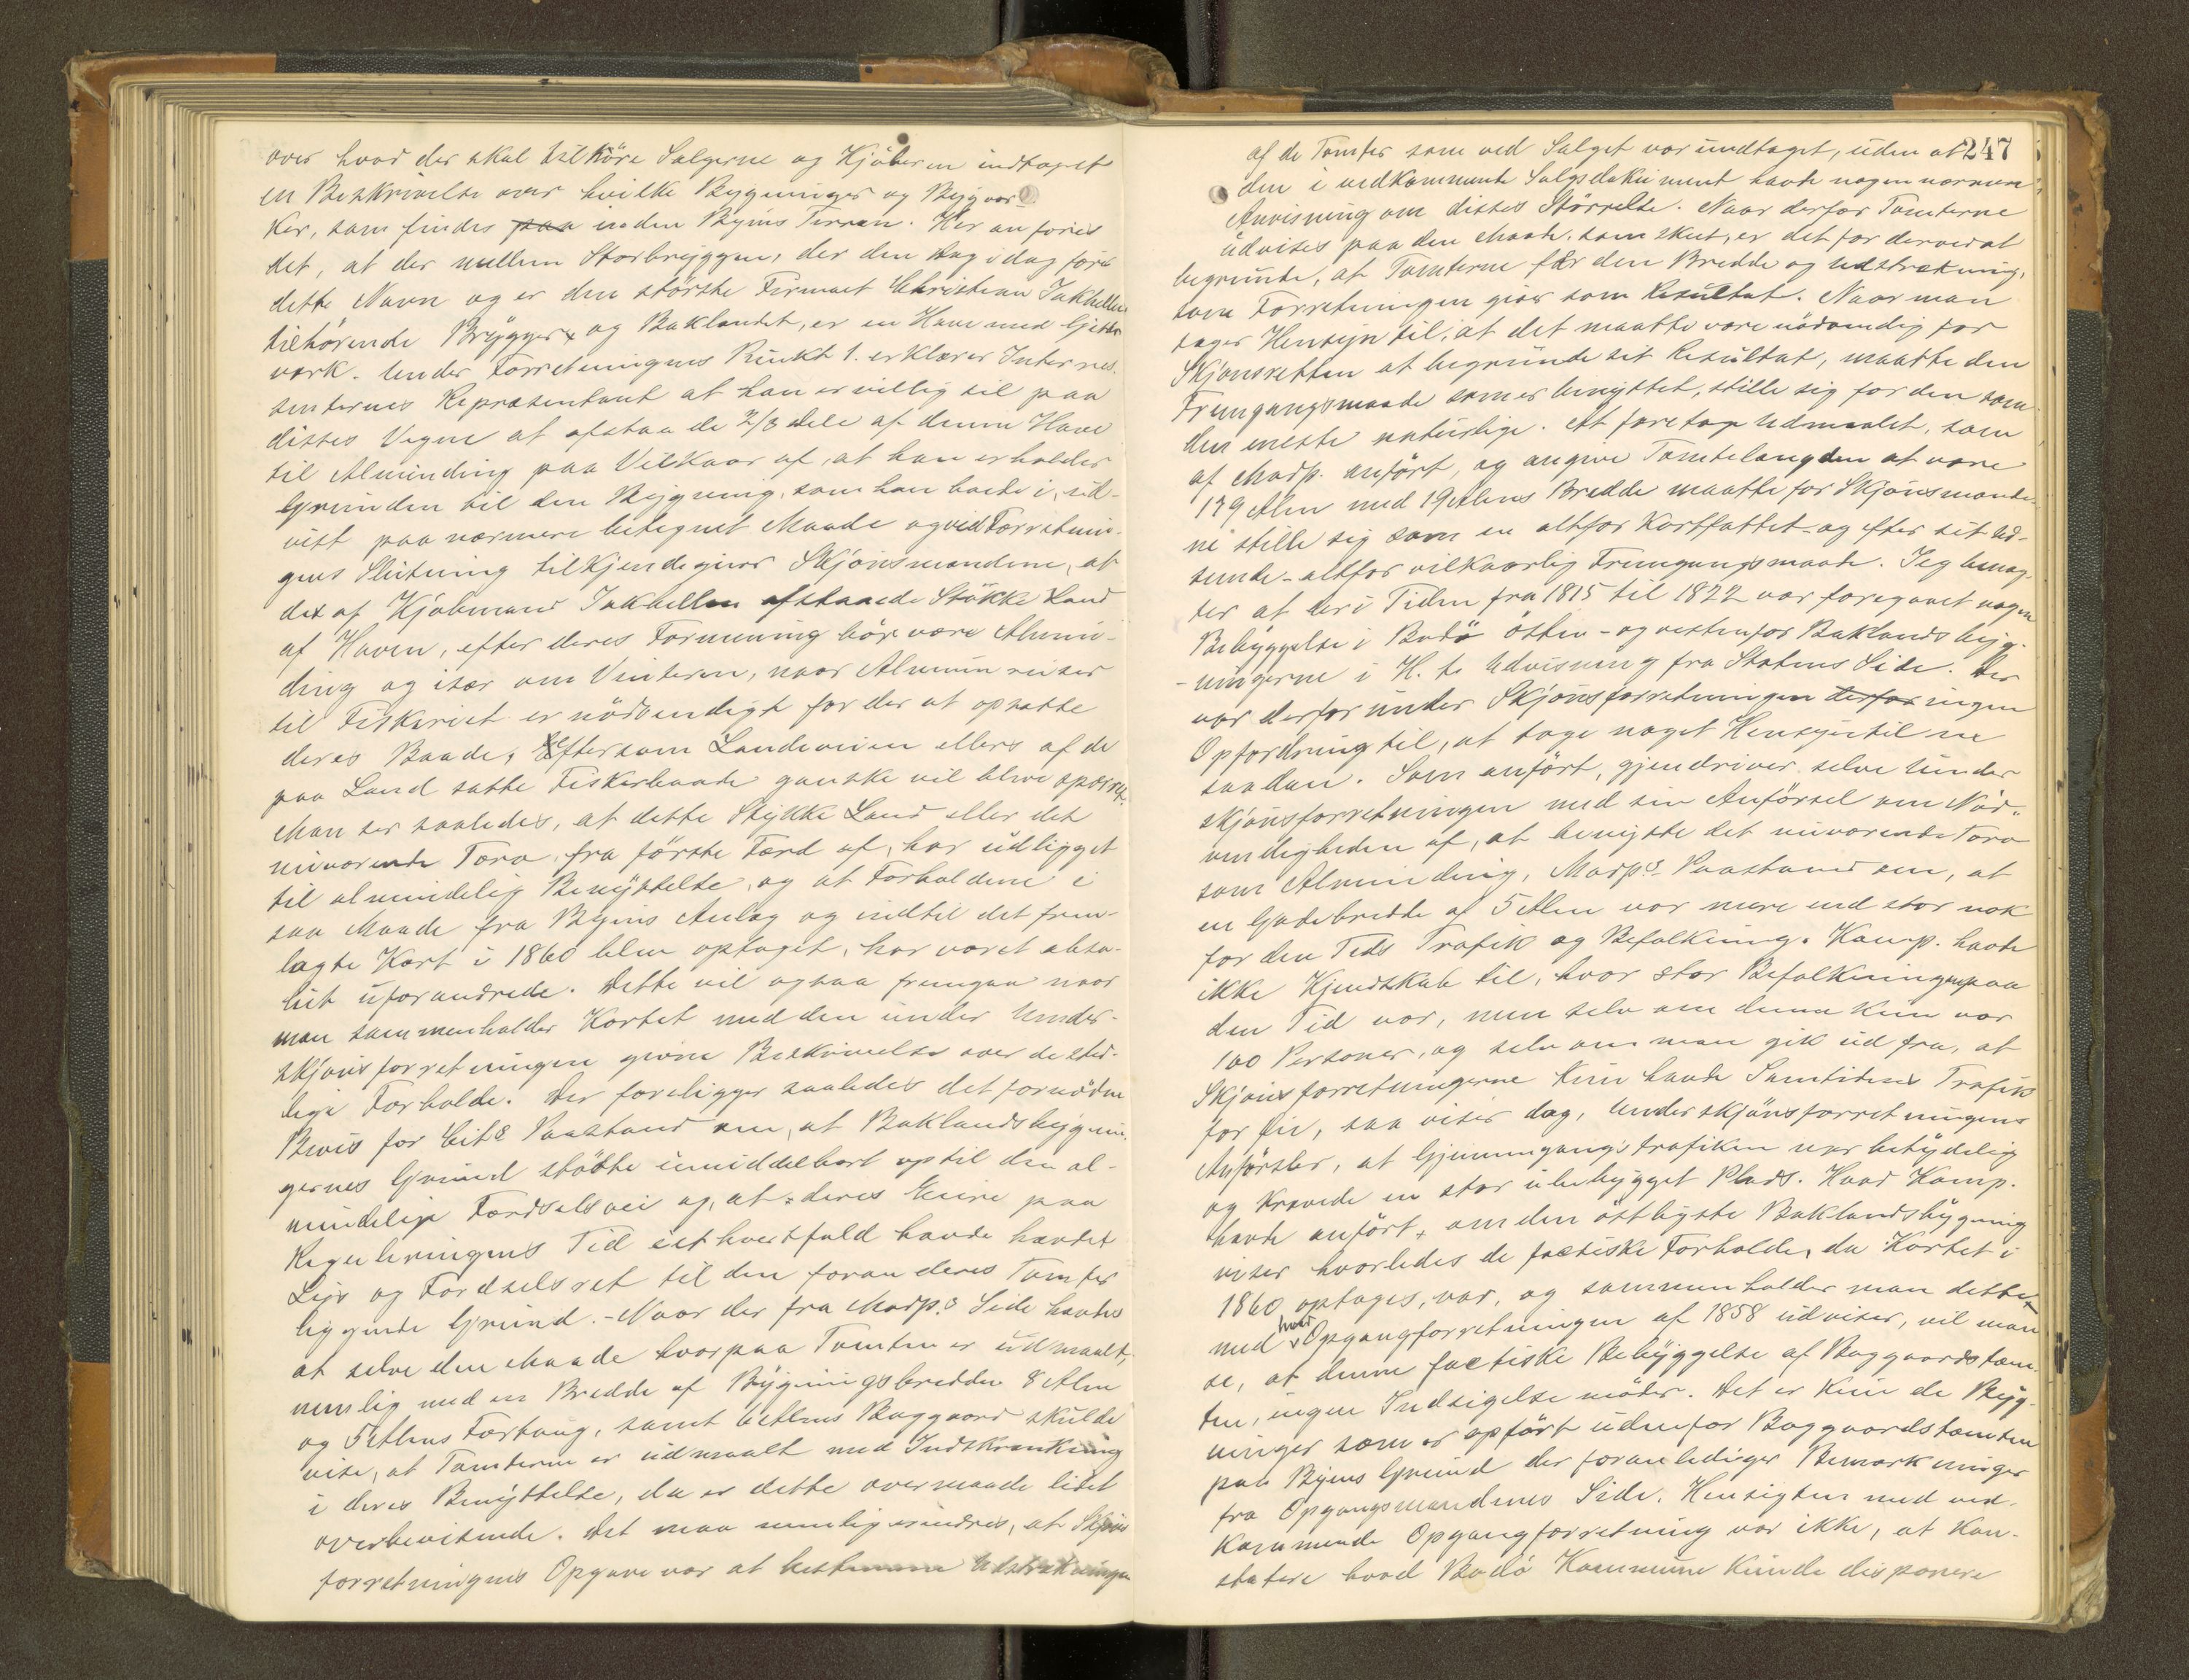 over hvad der skal tilhøre Sælgerne og Kjøberen indtaget
en Beskrivelse over hvilke Bygninger og Bygvær-
ker, som findes paa inden Byens Terræn. Her anføres
det, at der mellem Storbryggen, der den Dag i dag fører
dette Navn og er den største Firmaet Christian Jakhelln
tilhørende Brygger og Baklandet, er en Have med Gjetter-
værk. Under Forretningens Punkt 1. erklærer Interes-
senternes Repræsentant at han er villig til paa
disses Vegne at afstaa de 2/3 dele af denne Have
til Alminding paa Vilkaar af, at han erholder
Grunden til den Bygning, som han havde i, ud-
vist paa nærmere betegnet Maade og ved Forretnin-
gens Slutning tilkjendegiver Skjønsmændene, at
det af Kjøbmand Jakhelln afstaaede Stökke Land
af Haven, efter deres Formening bør være Almin-
ding og især om Vinteren, naar Almuen reiser
til Fiskeriet er nödvendigt for der at opsætte
deres Baade, Eftersom Landeveien ellers af de
paa Land satte Fiskerbaade ganske vil blive spærret.
Man ser saaledes, at dette Stykke Land eller det
nuværende Torv fra förste Færd af, har udligget
til almindelig Benyttelse, og at Forholdene i
saa Maade fra Byens Anlæg og indtil det frem-
lagte Kart i 1860 blev optaget, har været abso-
lut uforandrede. Dette vil ogsaa fremgaa naar
man sammenholder Kortet med den under Under-
skjønsforretningen givne Beskrivelse over de sted-
lige Forholde. Der foreligger saaledes det fornödne
Bevis for Cits Paastand om, at Baklandsbygnin-
gernes Grund stödte umiddelbart op til den al-
mindelige Færdselsvei og, at deres Eiere paa
Reguleringens Tid i ethvertfald havde hævdet
Leje og Færdselsret til den foran deres Tomter
liggende Grund. - Naar der fra Modp.s Side hævdes
at selve den Maade hvorpaa Tomten er udmaalt,
nemlig med en Bredde af Bygningsbredden 8 Alen
og 5 Alens Fortaug, samt 6 Alens Baggaard skulde
vise, at Tomterne er udmaalt med Indskrænkning
i deres Benyttelse, da er dette overmaade lidet
overbevisende. Det maa nemlig erindres, at Skjøns
forretningens Opgave var at bestemme Udstrækningen
247
af de Tomter som ved Salget var undtaget, uden at
den i vedkommende Salgsdokument havde nogen nærmere
Anvisning om disses Störrelse. Naar derfor Tomterne
udvises paa den Maade, som skeet, er det for derved at
begrunde, at Tomterne får den Bredde og Udstrækning,
som Forretningen giver som Resultat. Naar man
tager Hensyn til, at det maatte være nödvendig for
Skjønsretten at begrunde sit Resultat, maatte den
Fremgangsmaade som er benyttet, stille sig for den som
den eneste naturlige. At foretage Udmaalet, som
af Modp. anført, og angive Tomtelængden at være
139 Alen med 19 Alens Bredde maatte for Skjønsmænde-
ne stille sig som en altfor kortfattet- og efter sit Ud-
seende - altfor vilkaarlig Fremgangsmaade. Jeg benæg-
ter at der i Tiden fra 1815 til 1822 var foregaaet nogen
Bebyggelse i Bodö østen- og vestenfor Baklandsbyg-
-ningerne i H. t. Udvisning fra Statens Side. Der
var derfor under Skjønsforretningen derfor ingen
Opfordring til, at tage noget Hensyn til en
saadan. Som anført, gjendriver selve Under
skjønsforretningen med sin Anførsel om Nød-
vendigheden af, at benytte det nuværende Torv
som Alminding, Modp.s Paastand om, at
en Gadebredde af 5 Alen var mere end stor nok
for den Tids Trafik og Befolkning. Komp. havde
ikke Kjendskab til, hvor stor Befolkningen paa
den Tid var, men selv om denne kun var
100 Personer, og selv om man gik ud fra, at
Skjønsforretningerne kun havde Samtidens Trafik
for Öie, saa viser dog, Underskjønsforretningens
Anførsler, at Gjennemgangstrafiken var betydelig
og krævede en stor ubebygget Plads. Hvad Komp.
havde anført, om den östligste Baklandsbygning
viser hvorledes de factiske Forholde, da Kortet i
1860 optages, var, og sammenholder man dette
med hvad Opgangforretningen af 1858 udviser, vil man
se, at denne factiske Bebyggelse af Baggaardstom-
ten, ingen Indsigelse møder. Det er kun de Byg-
ninger som er opført udenfor Baggaardstomten
paa Byens Grund der foranlediger Bemærkninger
fra Opgangsmændenes Side. Hensigten med ved-
kommende Opgangforretning var ikke, at kon-
statere hvad Bodö Kommune kunde disponere